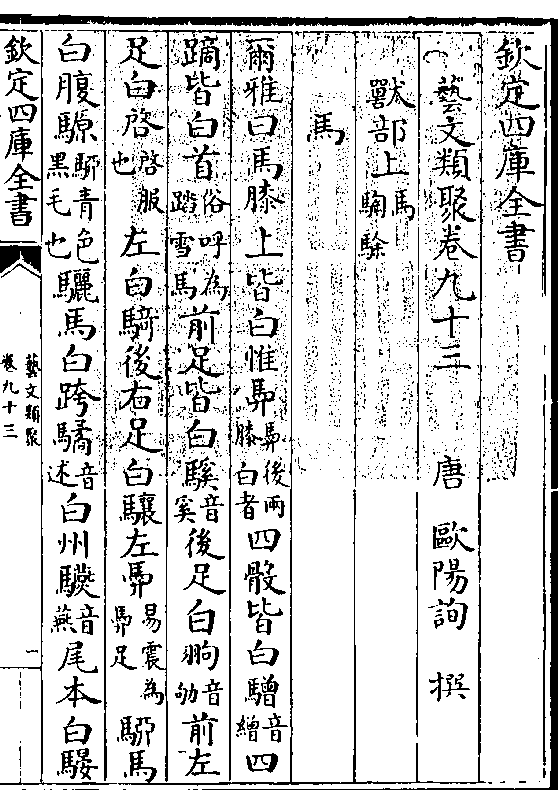 欽定四庫全書
藝文類聚卷九十三 唐 歐陽詢 撰
獸部上 馬 騊駼
馬
爾雅曰馬膝上皆白惟馵 馵後兩膝白者 四骹皆白驓 音繒 四
蹢皆白首 俗呼為踏雪馬 前足皆白騱 音奚 後足白翑 音劬 前左
足白啓 啓服也 左白騎後右足白驤左馵 易震為馵足 騧馬
白腹騵 騧青色黑毛也 驪馬白跨驈 音述 白州驠 音燕 尾本白騴
欽定四庫全書
藝文類聚
卷九十三
一